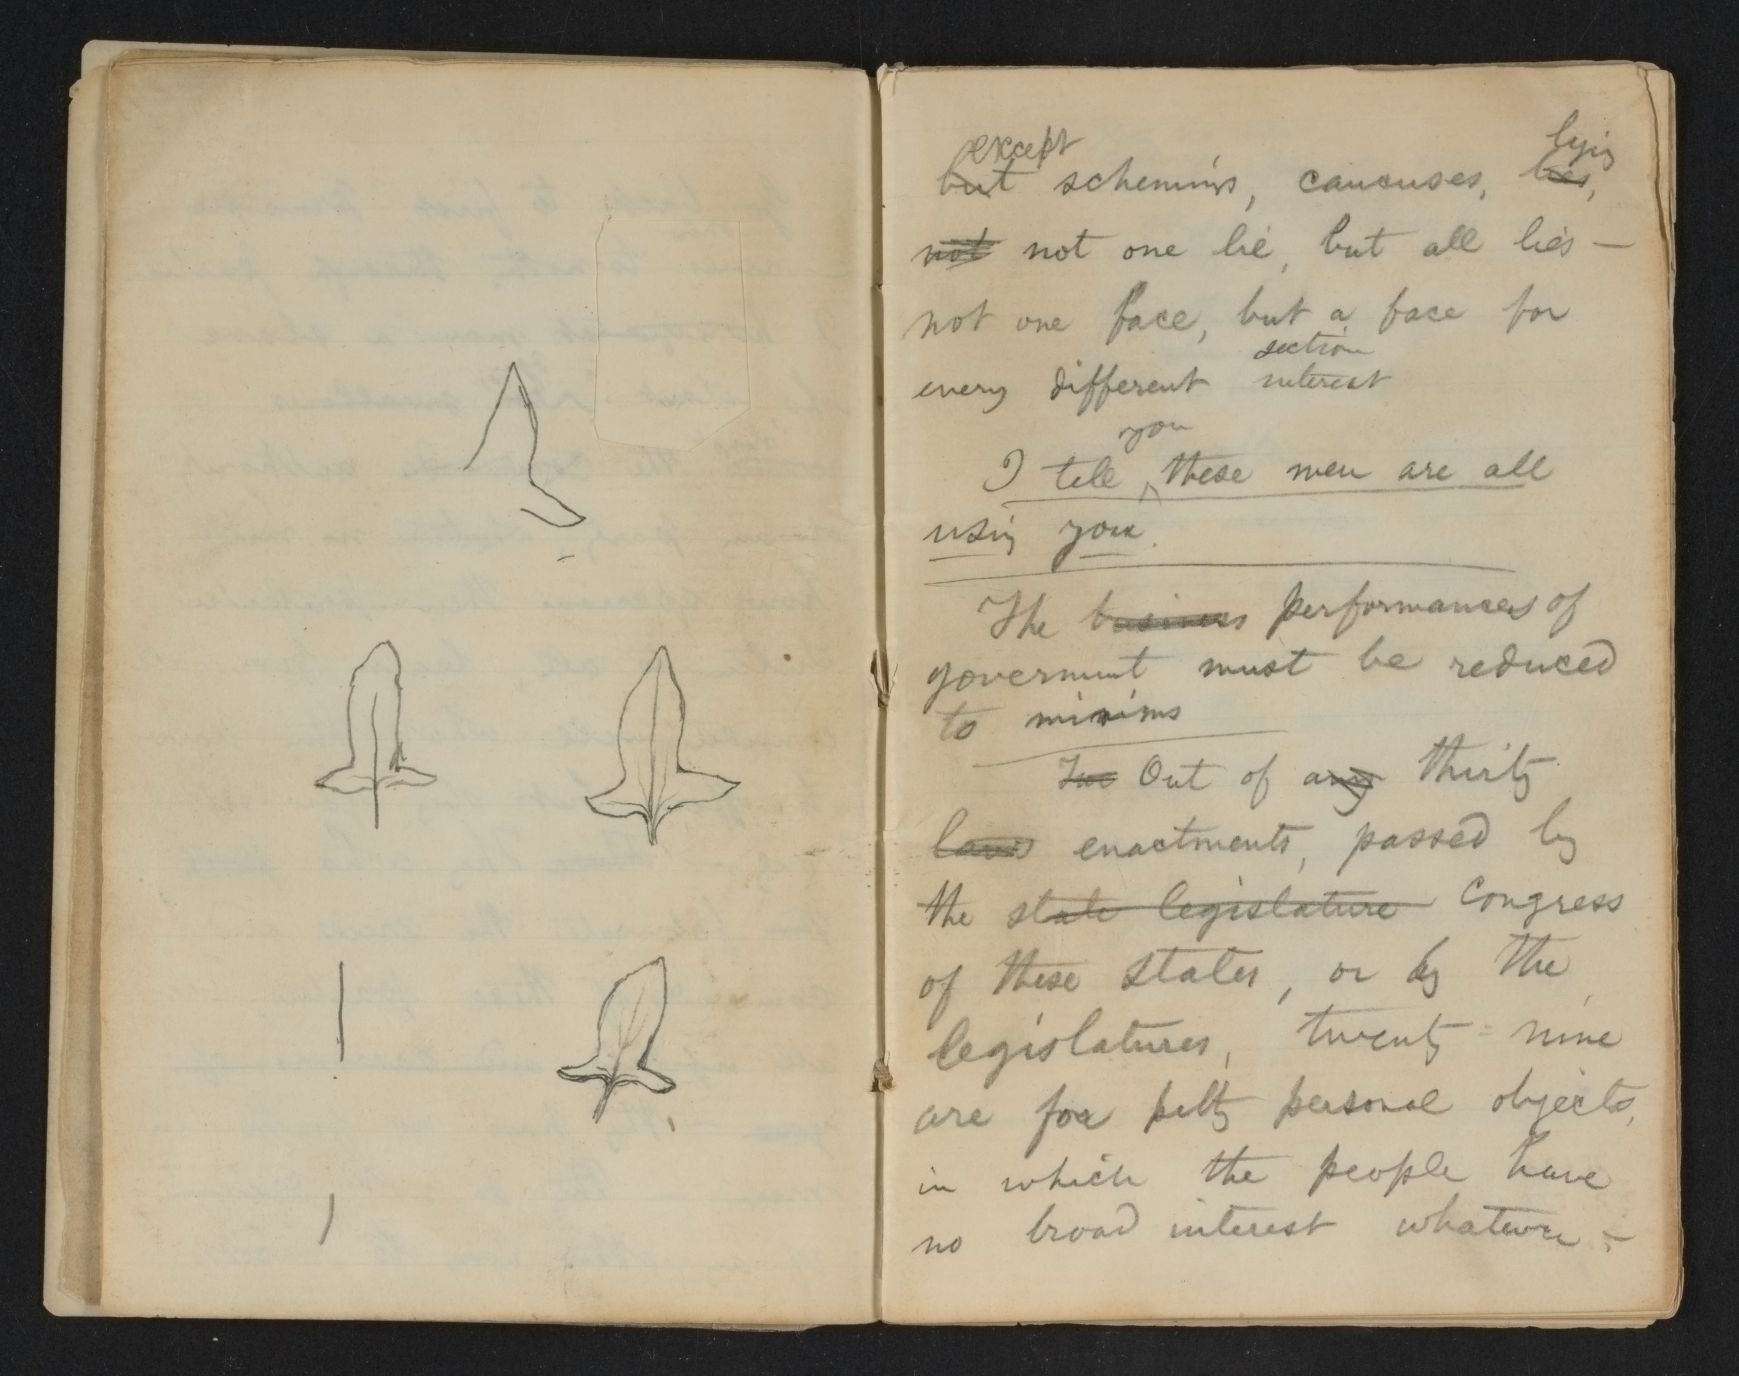 except lying
but schemings, caucuses, lies,
not not one lie, but all lies —
not one face, but a face for
section
every different interest
you
I tell ‸ these men are all
using you.
The business performances of
government must be reduced
to minims
Two Out of any thirty
laws enactments, passed by
the state legislature Congress
of these States, or by the
legislatures, twenty-nine
are for petty personal objects,
in which the people have
no broad interest whatever.—